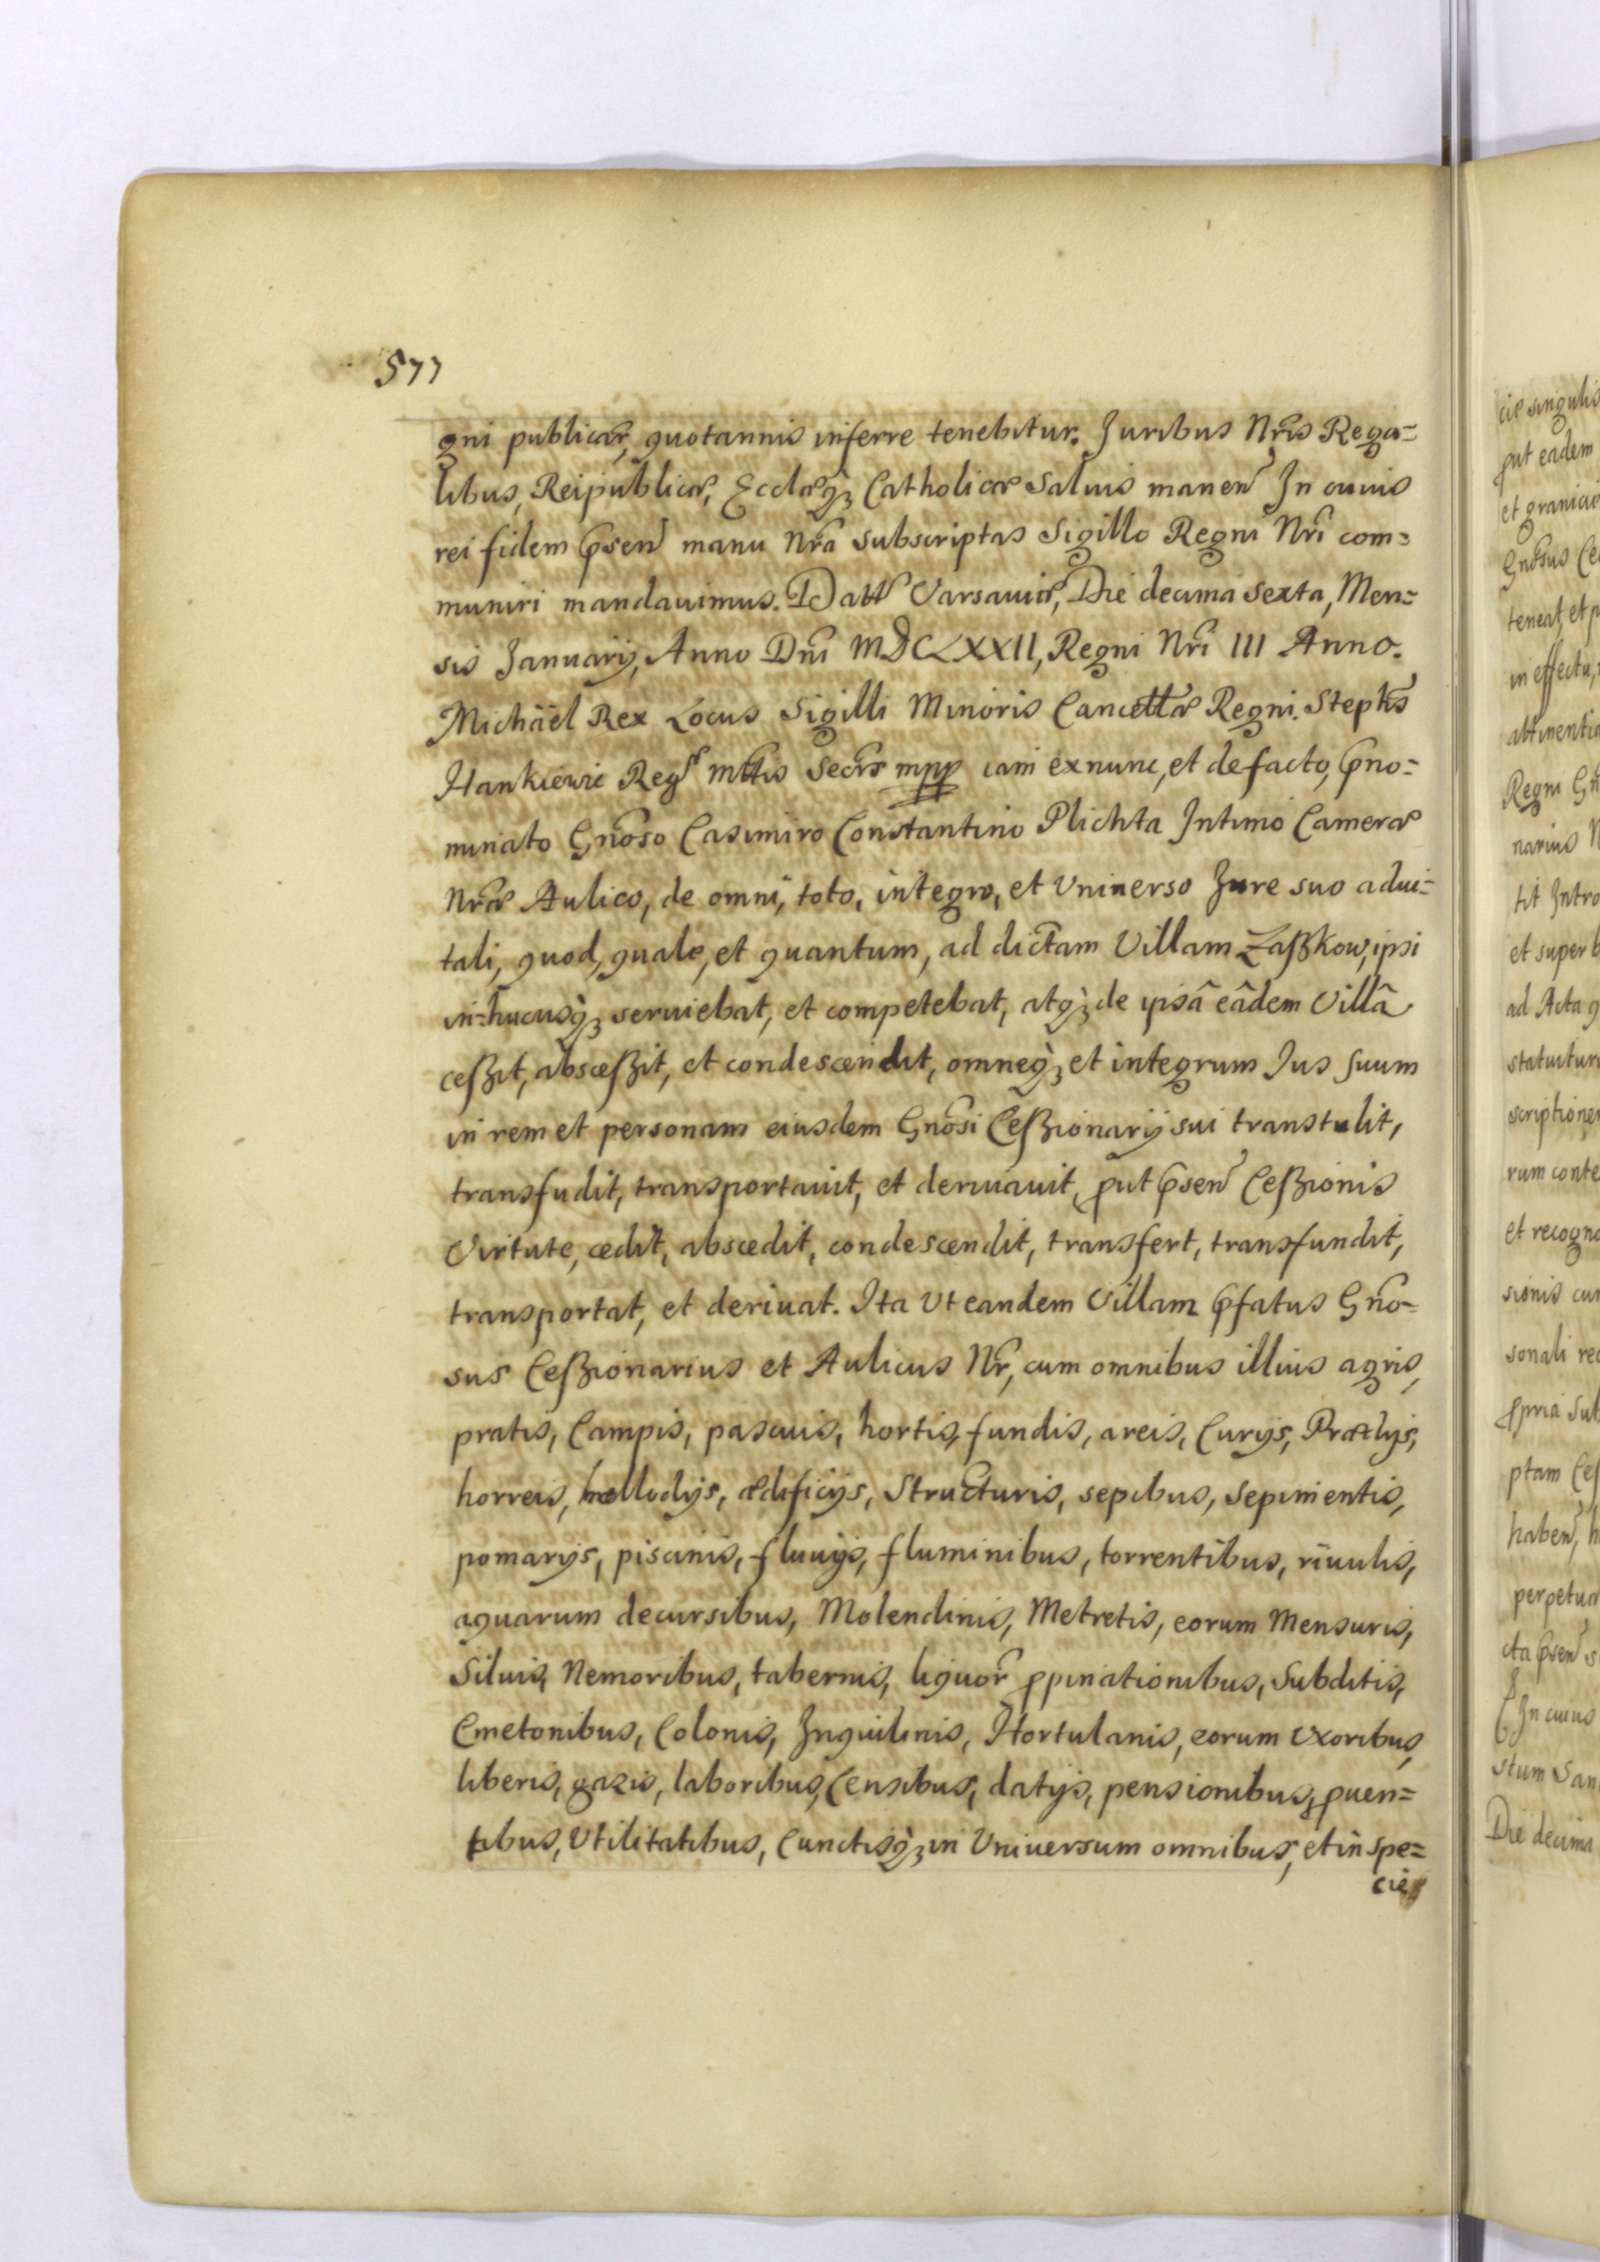 577
gni publicæ, quotannis inferre tenebitur. Juribus Nrīs Rega=
libus, Reipublicæ, Ecclæq̀ꝫ Catholicæ Saluis manen̄ In cuius
rei fidem p̄sen̄ manu Nrā subscriptas Sigillo Regni Nrī com=
muniri mandauimus. Datt Varsauiæ, Die decima Sexta, Men=
sis Januarij, Anno Dnī MDCLXXII, Regni Nrī III Anno.
Michäel Rex Locus Sigilli Minoris Cancellæ Regni. Stephs
Hankiewic Regæ Mttis Secrīs mpp iam exnunc, et defacto, p̄no=
minato Gnōso Casimiro Constantino Plichta Intimo Cameræ
Nræ Aulico, de omni, toto, integro, et Vniuerso Jure suo adui=
tali, quod, quale, et quantum, ad dictam Villam Zaßkow, ipsi
in=hucusq̀ꝫ seruiebat, et competebat, atq̀ꝫ de ipsâ eâdem Villâ
ceßit, absceßit, et condescendit, omneq̀ꝫ et integrum Ius suum
in rem et personam eiusdem Gnōsi Ceßionarij sui transtulit,
transfudit, transportauit, et deriuauit, ꝓut p̄sen̄ Ceßionis
Virtute, cedit, abscedit, condescendit, transfert, transfundit,
transportat, et deriuat. Ita Vt eandem Villam p̄fatus Gnō=
sus Ceßionarius et Aulicus Nr̄, cum omnibus illius agris,
pratis, Campis, pascuis, hortis, fundis, areis, Curijs, Prædijs,
horreis, hallodijs, ædificijs, Structuris, sepibus, Sepimentis,
pomarijs, piscinis, fluuijs, fluminibus, torrentibus, riuulis,
aquarum decursibus, Molendinis, Metretis, eorum Mensuris,
Siluis, Nemoribus, tabernis, liquor̄ ꝓpinationibus, Subditis,
Cmetonibus, Colonis, Inquilinis, Hortulanis, eorum Vxoribus,
liberis, gazis, laboribus, Censibus, datijs, pensionibus, ꝓuen=
tibus, Vtilitatibus, Cunctisq̀ꝫ in Vniuersum omnibus, et in spe=
cie
cie singulis
ꝓut eadem
Gnōsus
in effectu,
Regni
narius
tit
et super
ad Acta
rum
et
sionis
sonali
ꝓpria
ptam
haben̄,
p̄sen̄
In cuius
Die decima